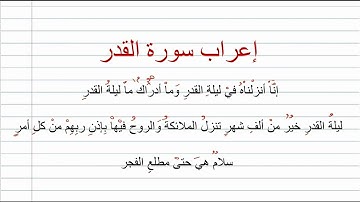 إعراب سورة القدر
إنَّاْ أنزلْناْهُ فيْ ليلةِ القدرِ وَماْ أدراْكَ ماْ ليلةُ القدرِ
ليلةُ القدرِ خيرٌ منْ ألفِ شهرٍ تنزلُ الملائكةُ والروحُ فيْهاْ بإذنِ ربِهِمْ منْ كلِ أمرٍ
سلامٌ هيَ حتىْ مطلعِ الفجر